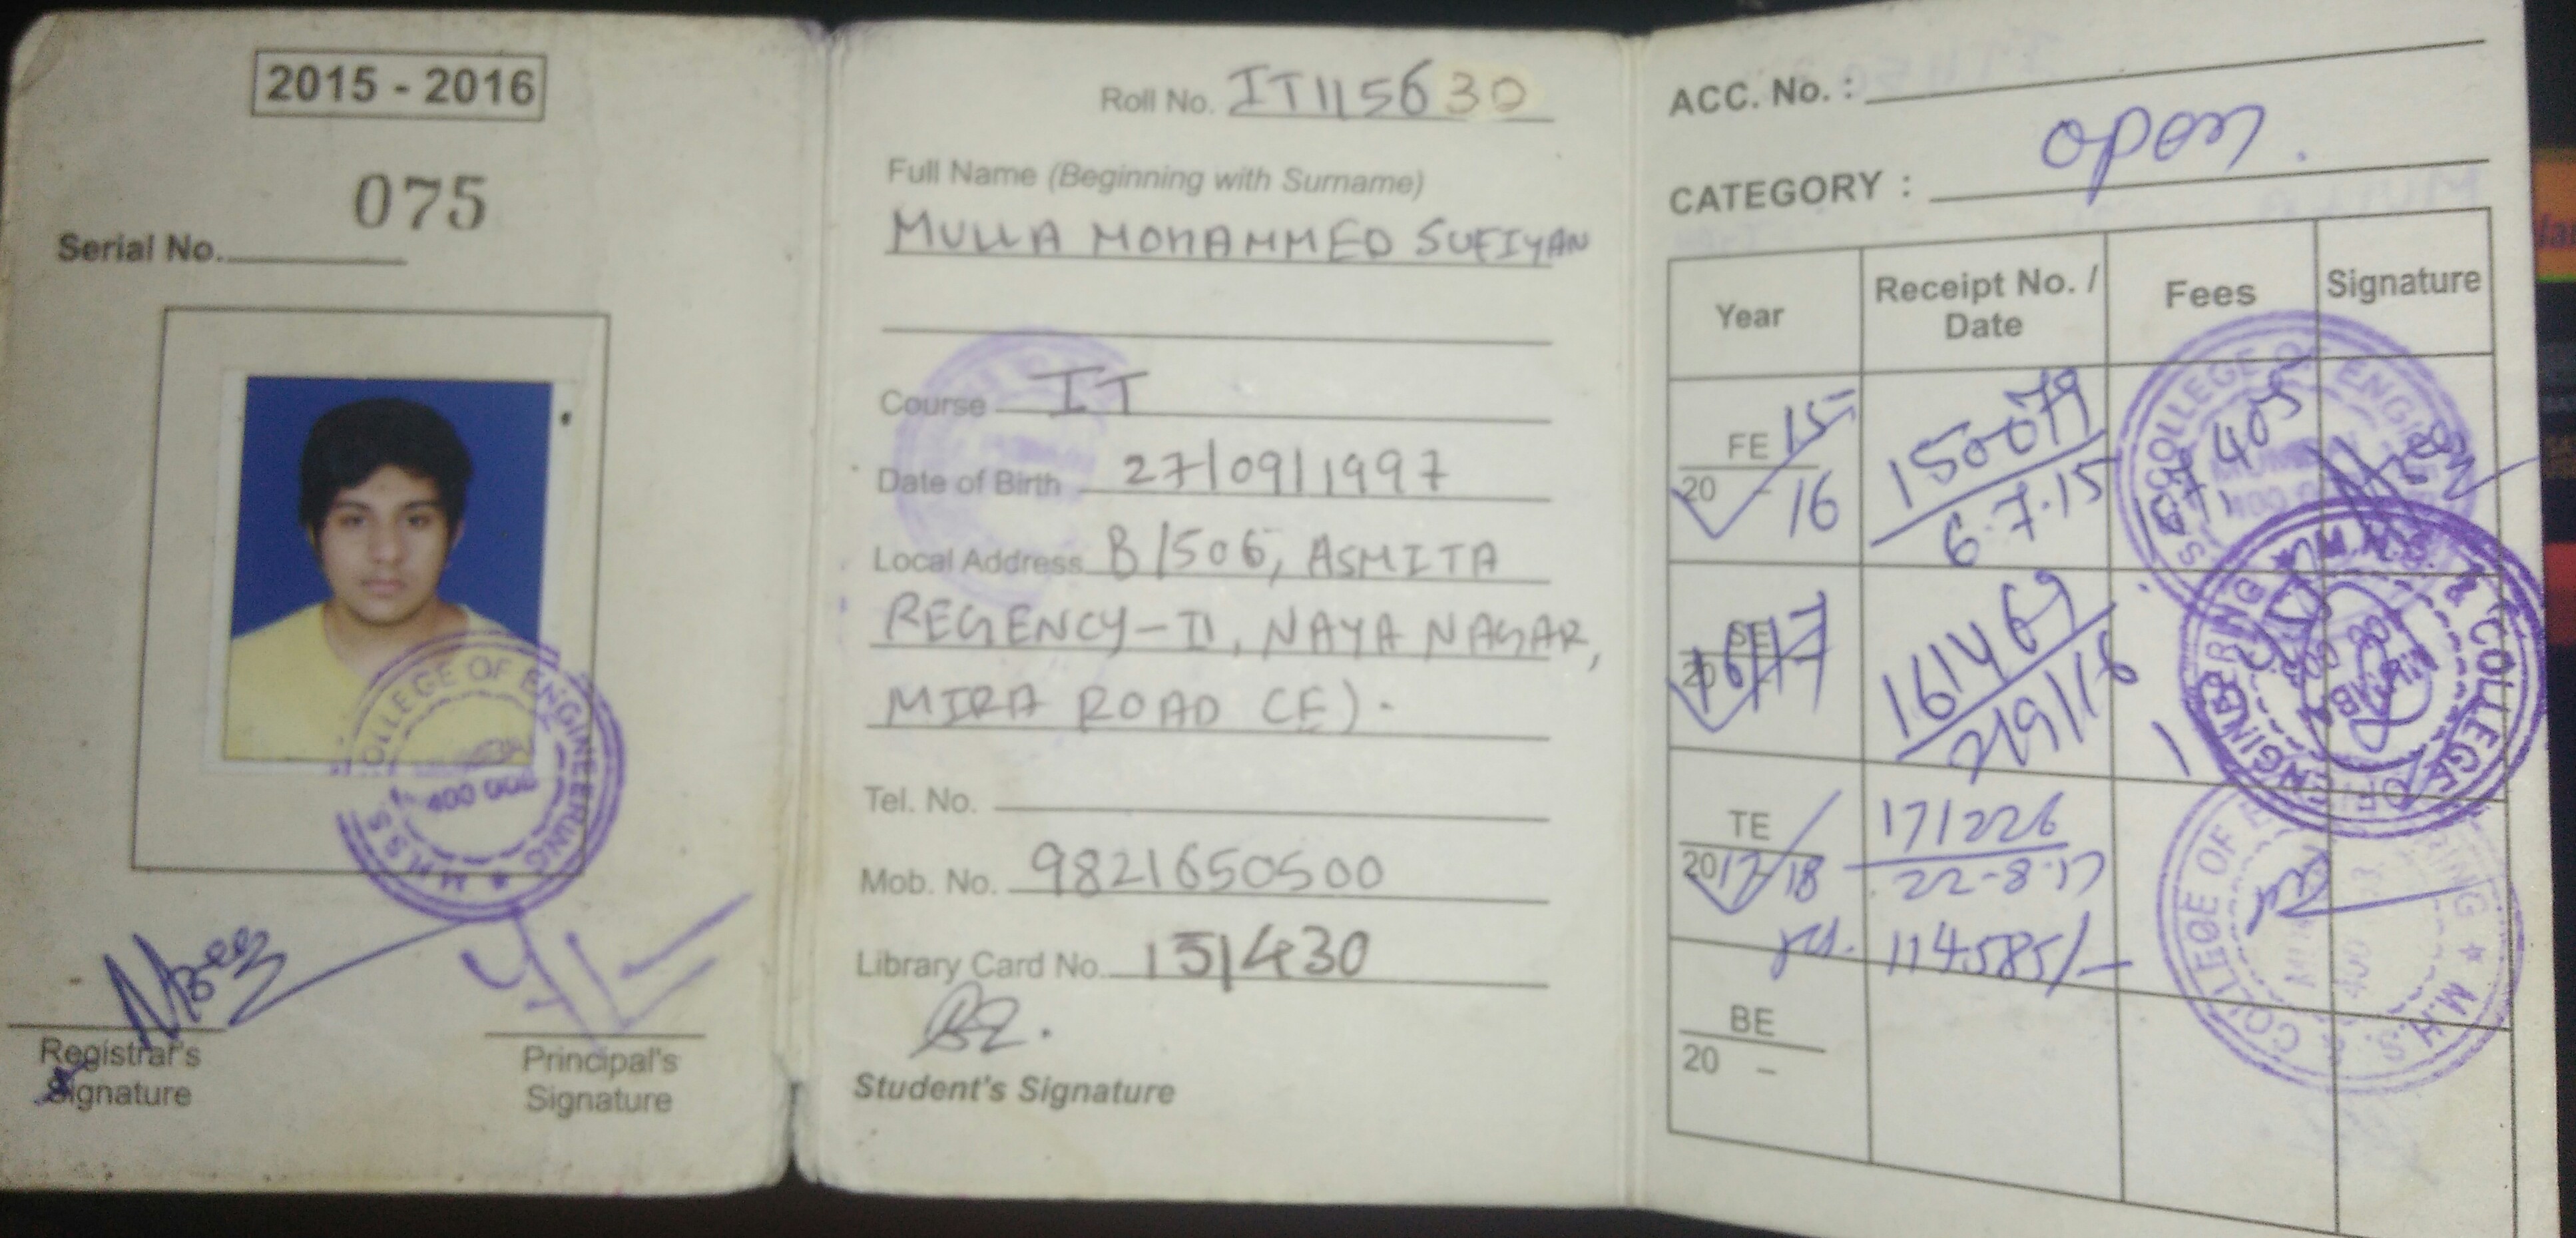 2015 - 2016
075
Serial No.
COLLEGE OF ENGINEERING ★ M.H.S.S.
400 008
Registrar's
Signature
Principal's
Signature
Roll No. IT115630
Full Name (Beginning with Surname)
MULLA MOHAMMED SUFIYAN
Course IT
Date of Birth 27/09/1997
Local Address B/506, ASMITA
REGENCY-II, NAYA NAGAR,
MIRA ROAD (E).
Tel. No.
Mob. No. 9821650500
Library Card No. 151430
Student's Signature
ACC. No. :
CATEGORY : open.
Year Receipt No. / Date Fees Signature
FE 2015 - 16 150079 6.7.15
SE 2016 - 17 161469
TE 2017 - 18 171226 22-8-17
114585/-
BE 20 -
COLLEGE OF ENGINEERING
COLLEGE OF ENGINEERING
COLLEGE OF ★ M.H.